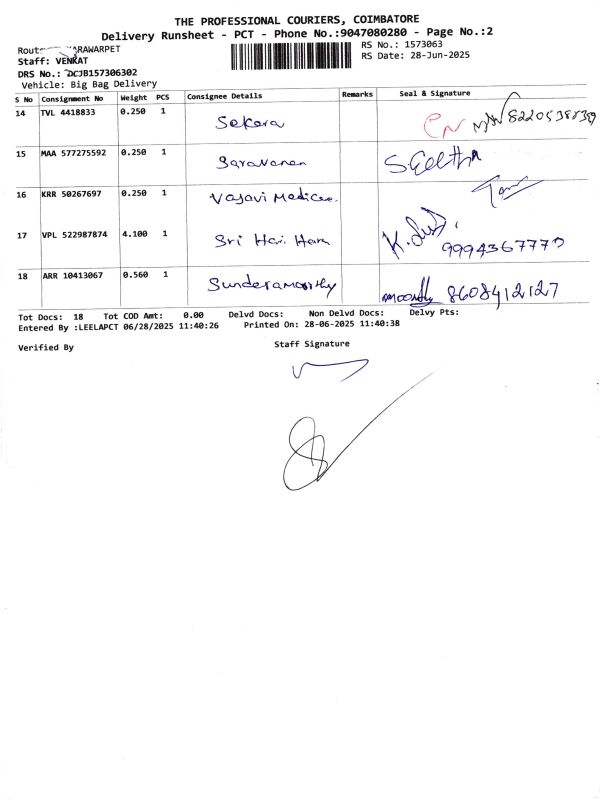 THE PROFESSIONAL COURIERS, COIMBATORE
Delivery Runsheet - PCT - Phone No.:9047080280 - Page No.:2
RS No.: 1573063
Staff: VENKAT
RS Date: 28-Jun-2025
DRS No.: DCJB157306302
Vehicle: Big Bag Delivery
S No Consignment No Weight PCS Consignee Details Remarks Seal & Signature
14 TVL 4418833 0.250 1 Sekara
15 MAA 577275592 0.250 1 Saravanan S. Geetha
16 KRR 50267697 0.250 1 Vasavi
17 VPL 522987874 4.100 1 Sri Hari Hara
18 ARR 10413067 0.560 1 Sunderamoorthy moorthy 8608412127
Tot Docs: 18 Tot COD Amt: 0.00 Delvd Docs: Non Delvd Docs: Delvy Pts:
Entered By :LEELAPCT 06/28/2025 11:40:26 Printed On: 28-06-2025 11:40:38
Verified By Staff Signature